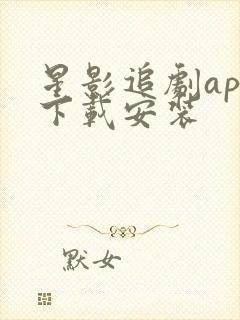 星影追劇ap
下載安装
默女